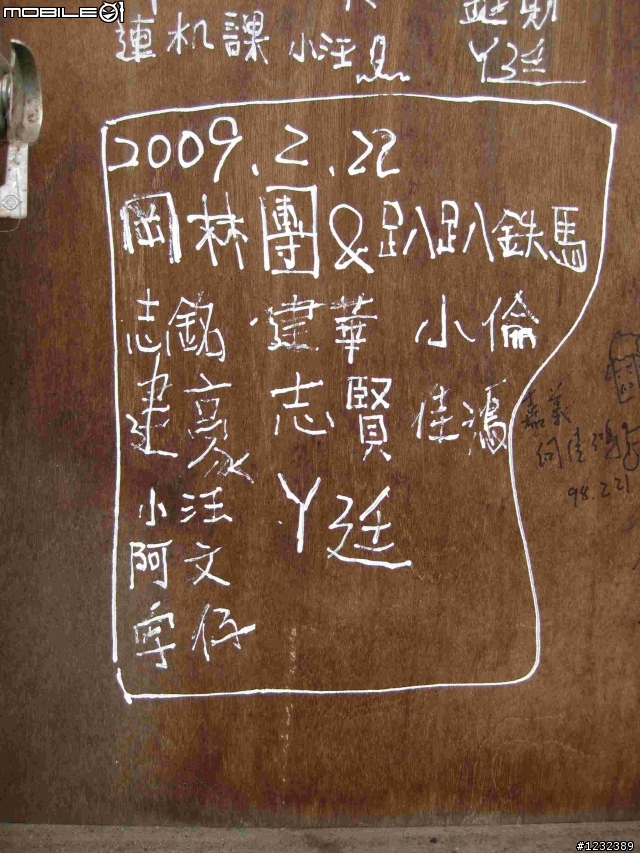 MOBILE01
連机課 小汪
丫廷
2009.2.22
岡林團&趴趴鉄馬
志銘 建華 小倫
建豪 志賢 佳鴻
小汪 丫廷
阿文
宇仔
嘉義
何佳鴻
98.2.21
#1232389